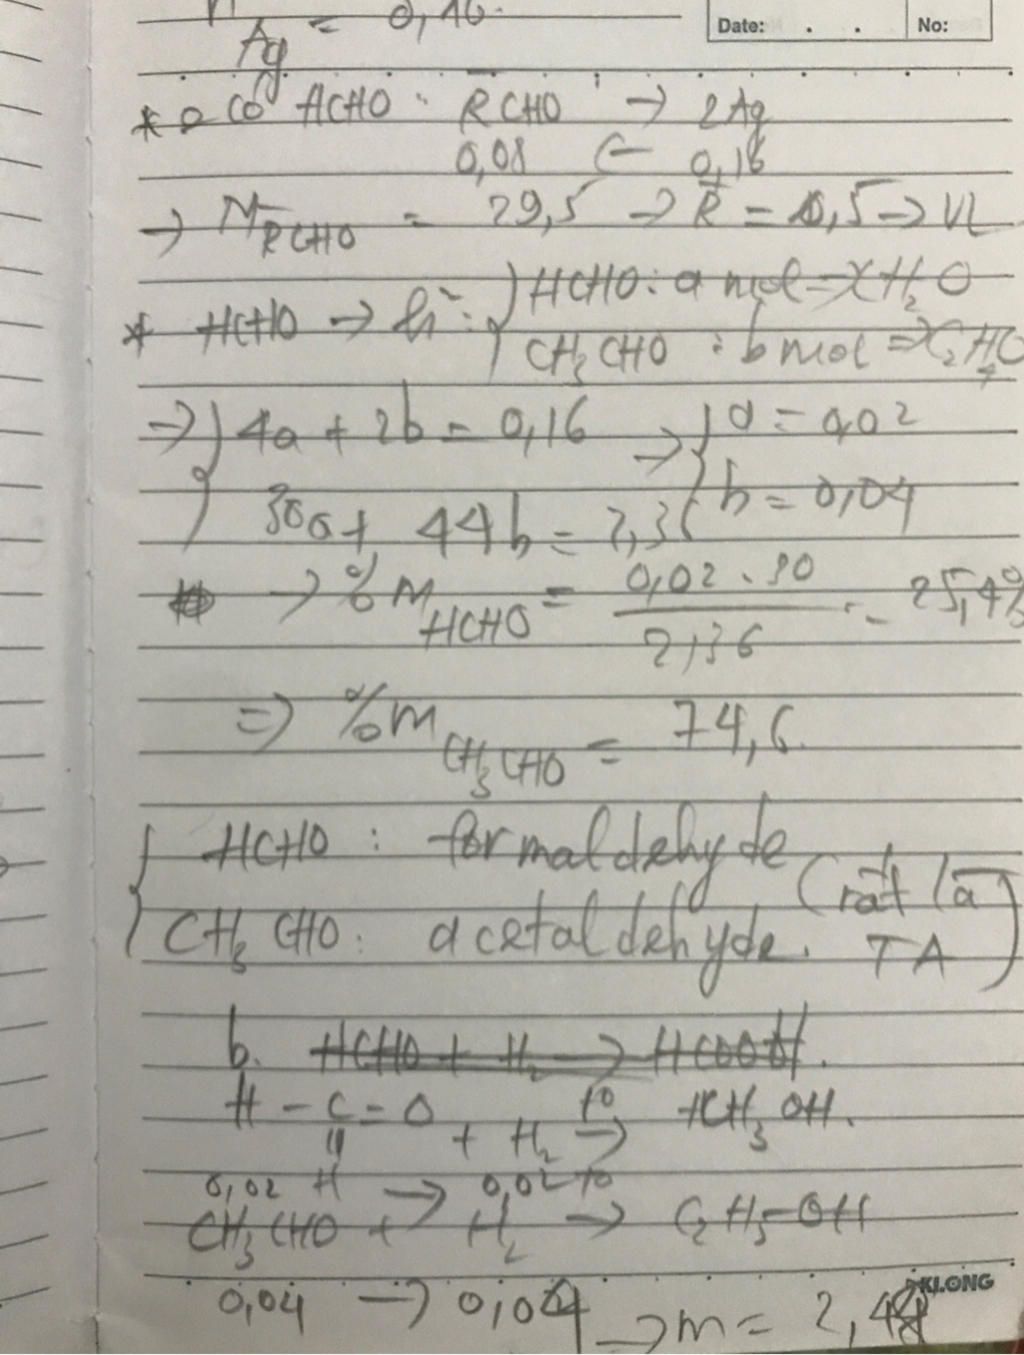 n Ag = 0,16.
Date: . . No:
* có HCHO: R̄CHO → 2Ag
0,08 ← 0,16
→ M R̄CHO = 29,5 → R̄ = 0,5 → VL
* HCHO → hh: { HCHO: a mol => CH₂O
CH₃CHO : b mol => C₂H₄O
=> { 4a + 2b = 0,16 → { a = 0,02
30a + 44b = 2,36 b = 0,04
→ %m HCHO = 0,02 . 30 / 2,36 = 25,4%
=> %m CH₃CHO = 74,6.
{ HCHO : formaldehyde (rất là
CH₃CHO: acetaldehyde. TA)
b. HCHO + H₂ → HCOOH.
H - C = O + H₂ t° → HCH₃OH.
0,02 H → 0,02 t°
CH₃CHO + H₂ → C₂H₅-OH
KLONG
0,04 → 0,04 → m = 2,48